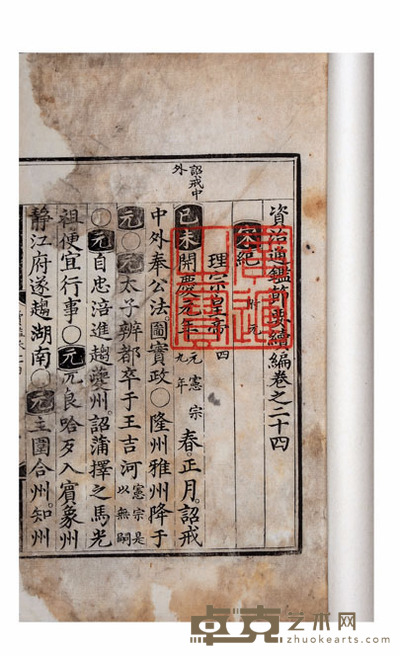 資治通鑑節要續編卷之二十四
宋紀 附元
理宗皇帝 四
詔戒中外
己未開慶元年 元憲宗九年 春。正月。詔戒
中外奉公法圖實政〇隆州雅州降于
元〇元太子辨都卒于王吉河 憲宗是以無嗣
〇元自忠涪進趨夔州。詔蒲擇之馬光
祖便宜行事〇元兀良哈歹入賓象州
静江府遂趨湖南〇元主圍合州。知州
卓克艺术网
zhuokearts.com